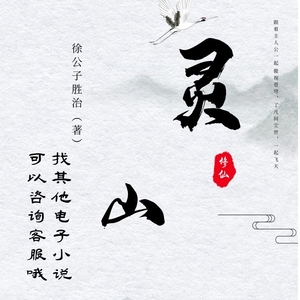 灵山
修仙
徐公子胜治（著）
找其他电子小说
可以咨询客服哦